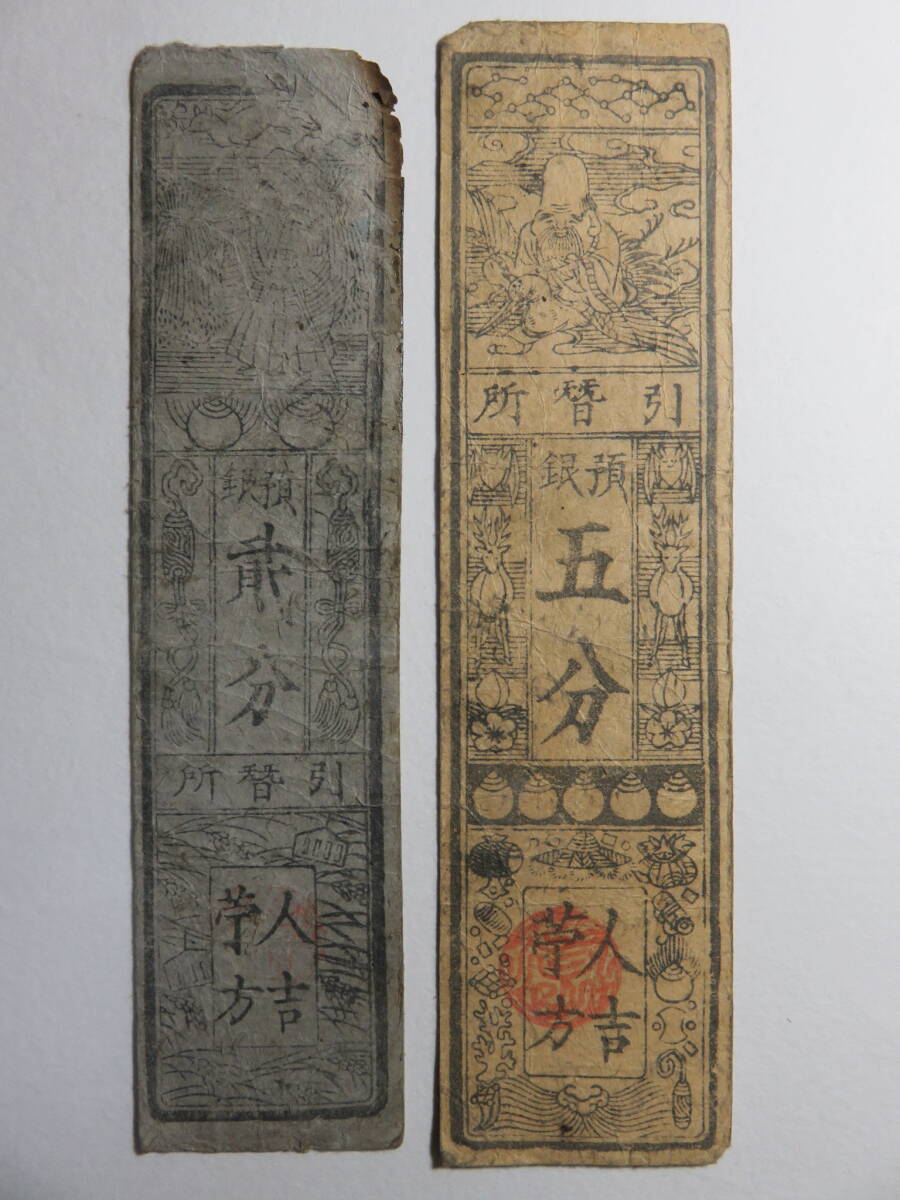 引替所
預銀
五分
人吉
苧方
預銀
貳分
引替所
人吉
苧方